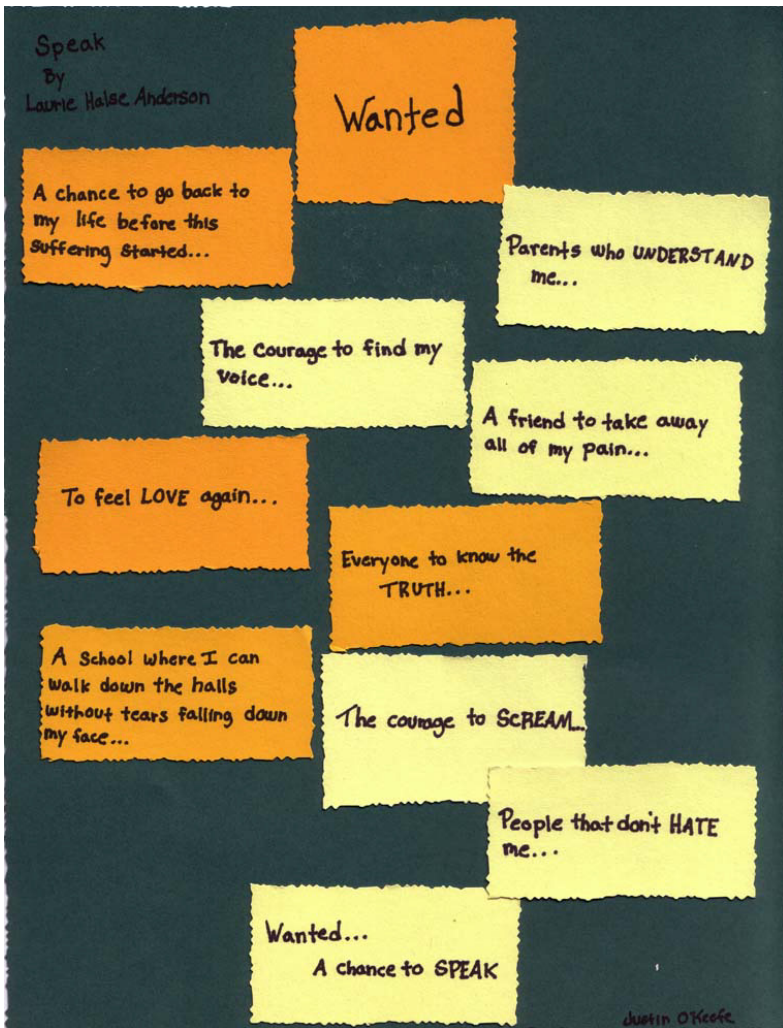 Speak
By
Laurie Halse Anderson
Wanted
A chance to go back to
my life before this
suffering started...
Parents who UNDERSTAND
me...
The courage to find my
voice...
A friend to take away
all of my pain...
To feel LOVE again...
Everyone to know the
TRUTH...
A School where I can
walk down the halls
without tears falling down
my face...
The courage to SCREAM...
People that don't HATE
me...
Wanted...
A chance to SPEAK
Justin O'Keefe